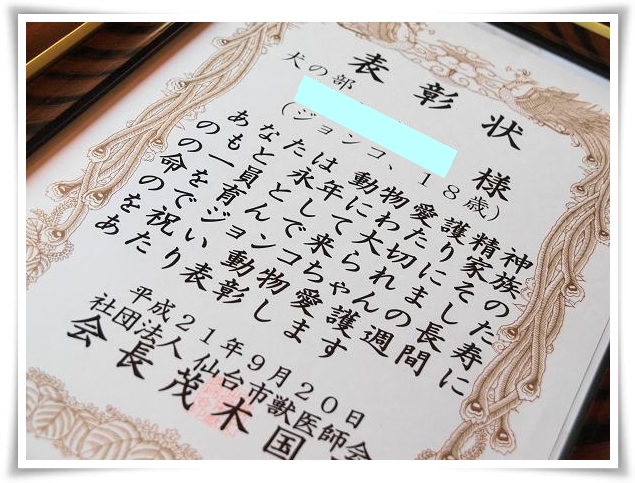 表彰状
犬の部
様
(ジョンコ、18歳)
あなたは動物愛護精神
のもと永年にわたり家族
の一員として大切にその
命を育んで来られました
のでジョンコちゃんの長寿
を祝い動物愛護週間に
あたり表彰します
平成21年9月20日
社団法人 仙台市獣医師会
会長 茂木国